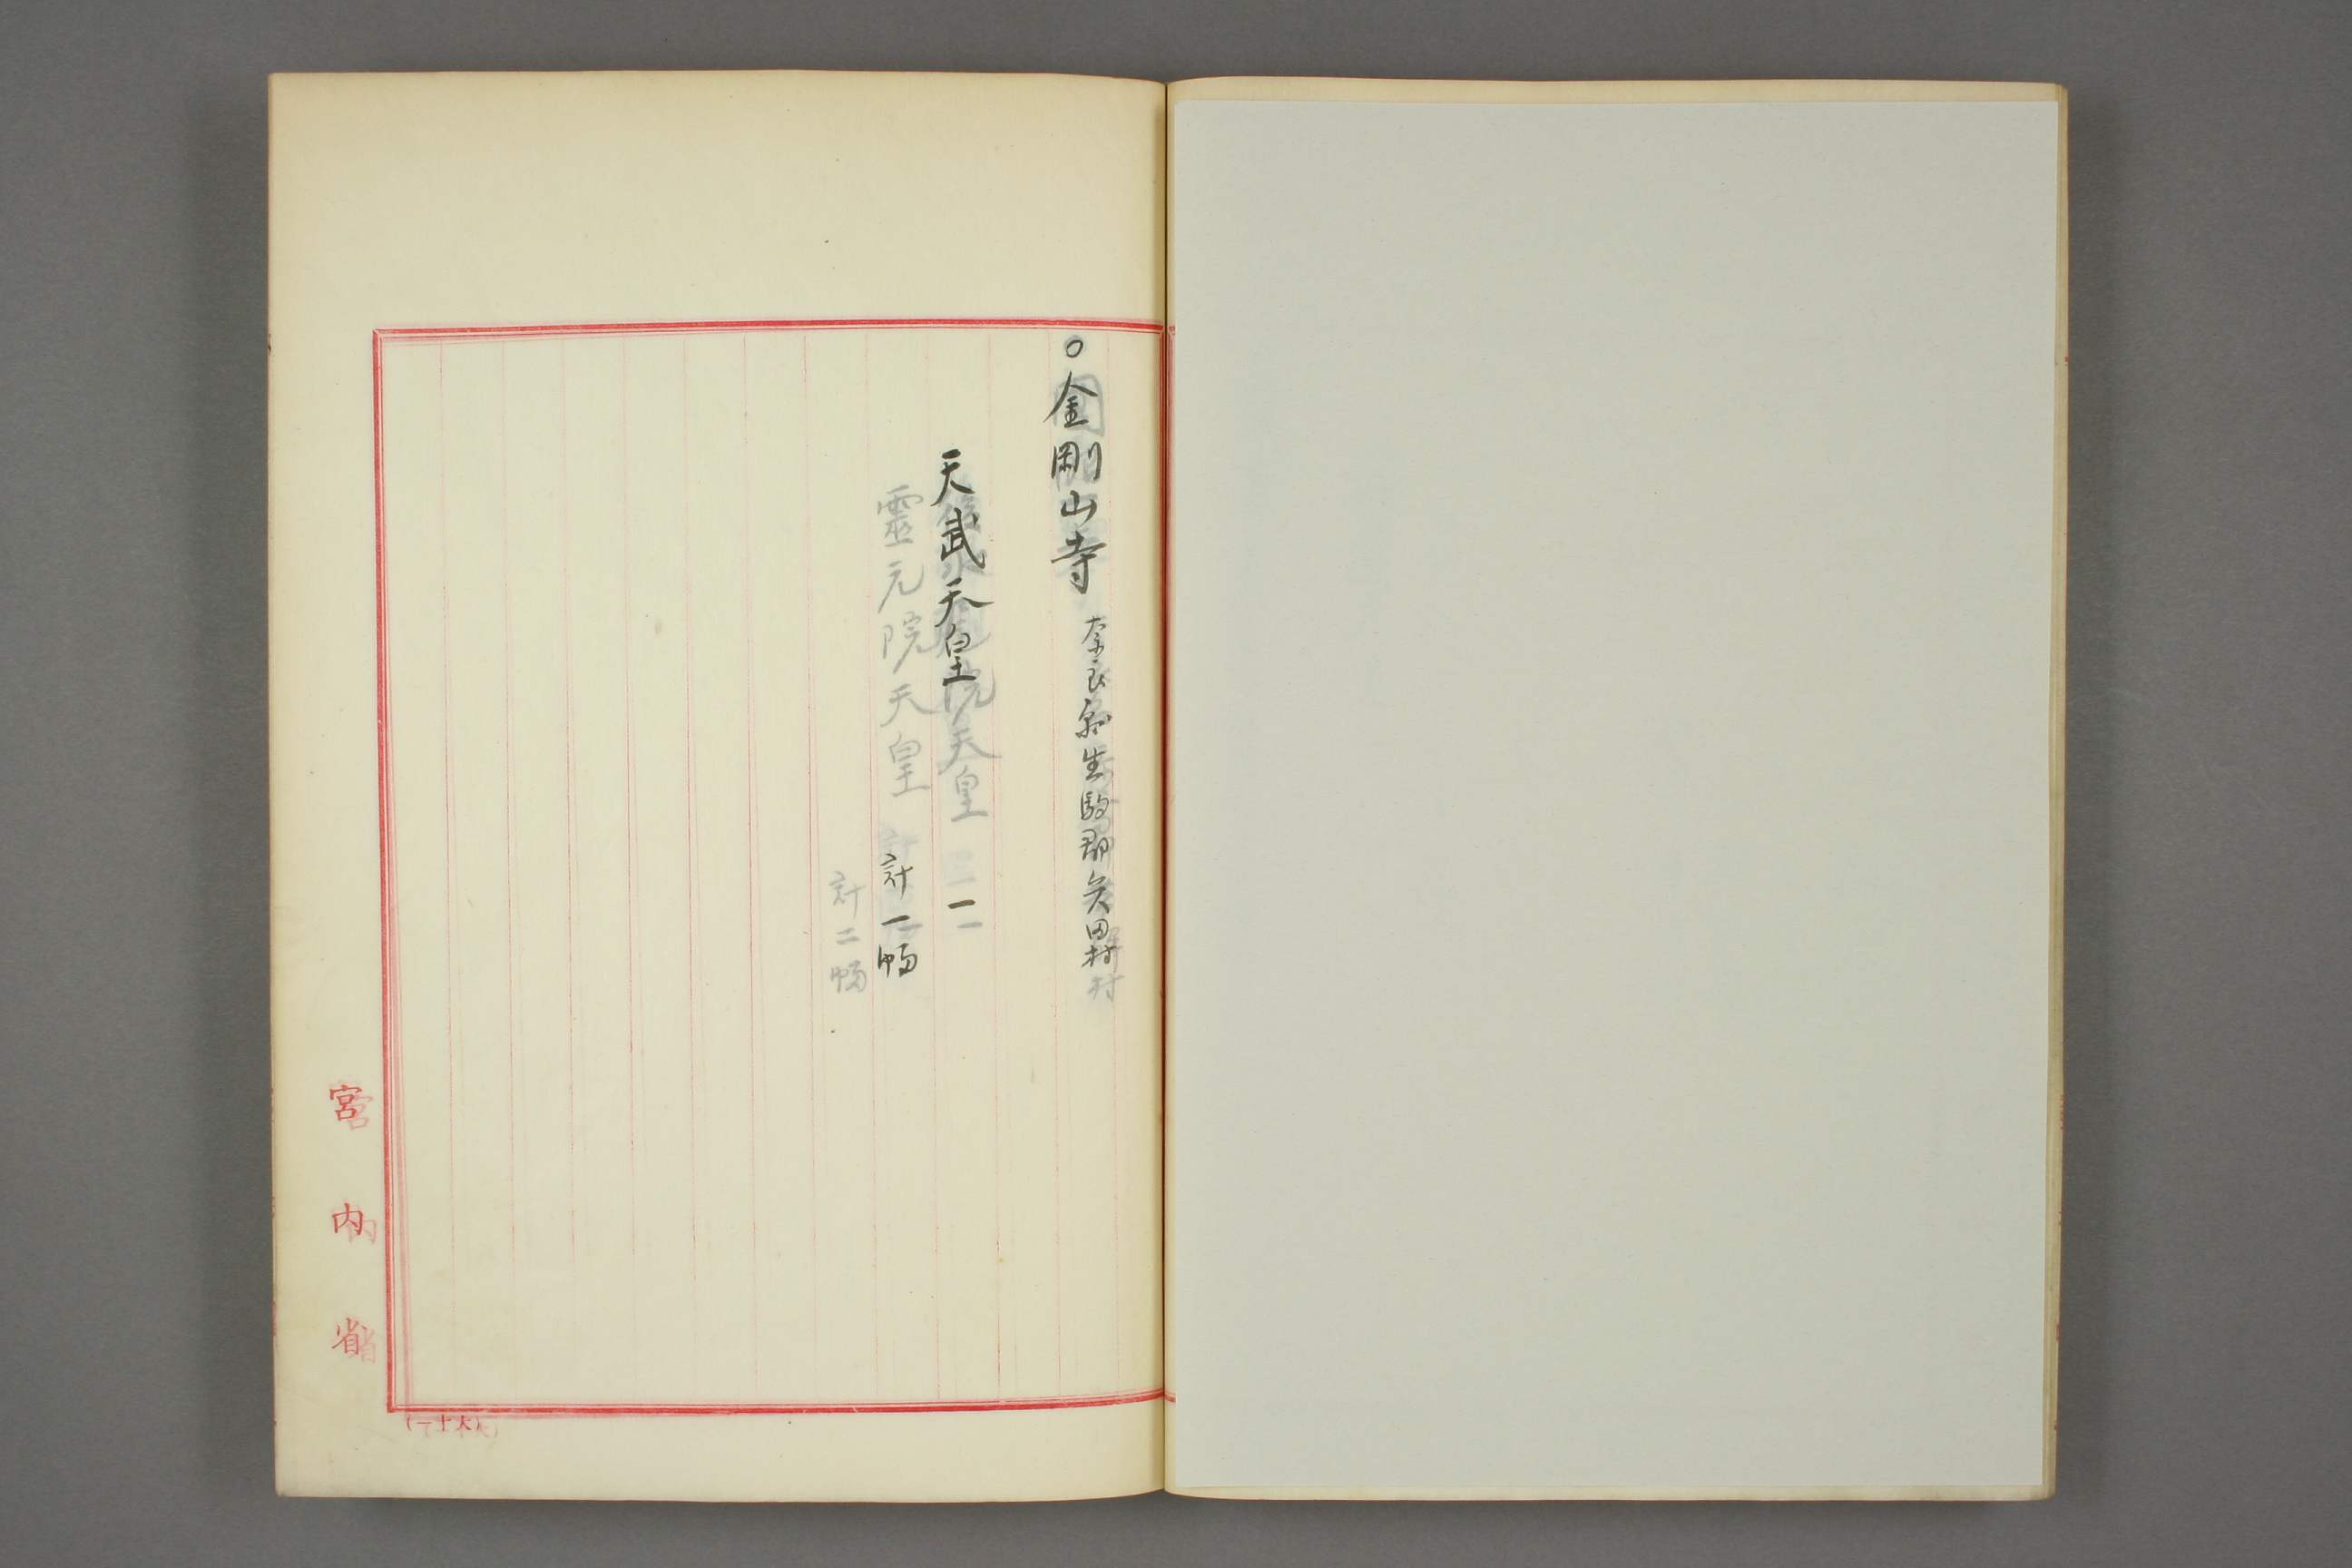 ○金剛山寺 奈良縣生駒郡矢田村
天武天皇 一
計一幅
靈元院天皇 一
計二幅
宮内省